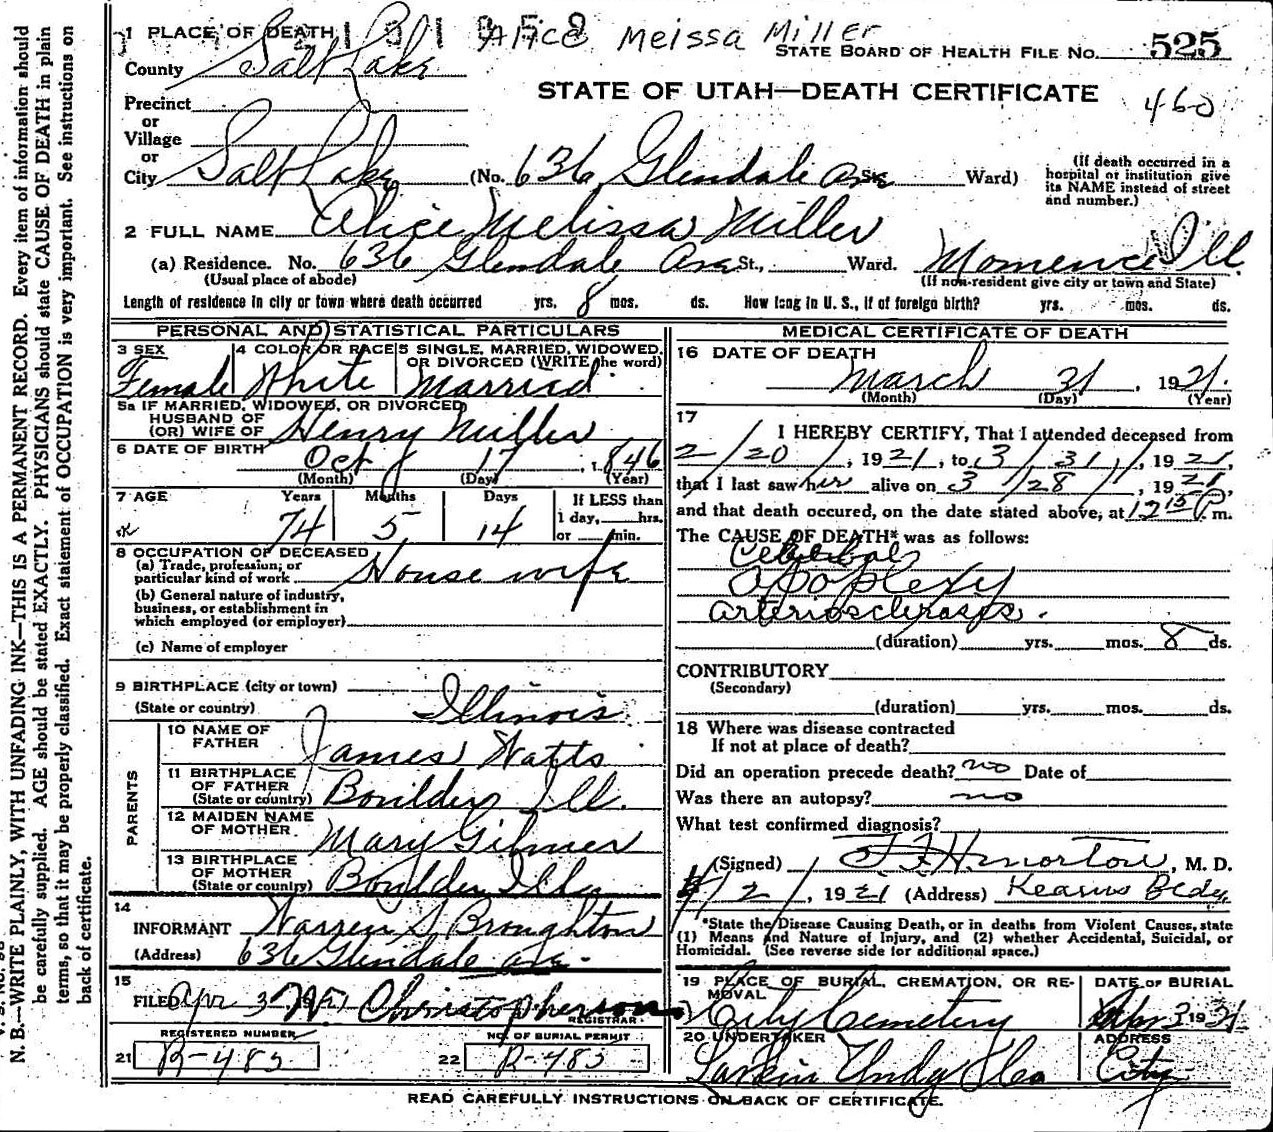 Alice Meissa Miller
1 PLACE OF DEATH
STATE BOARD OF HEALTH FILE NO. 525
County Salt Lake
STATE OF UTAH—DEATH CERTIFICATE
460
Precinct
or
Village
or
City Salt Lake (No. 636 Glendale Ave St. Ward)
(If death occurred in a hospital or institution give its NAME instead of street and number.)
2 FULL NAME Alice Melissa Miller
(a) Residence. No. 636 Glendale Ave St., Ward. Momence Ill
(Usual place of abode) (If non-resident give city or town and State)
Length of residence in city or town where death occurred yrs. 8 mos. ds. How long in U. S., if of foreign birth? yrs. mos. ds.
PERSONAL AND STATISTICAL PARTICULARS
3 SEX Female
4 COLOR OR RACE White
5 SINGLE, MARRIED, WIDOWED, OR DIVORCED (WRITE the word) Married
5a IF MARRIED, WIDOWED, OR DIVORCED
HUSBAND OF
(OR) WIFE OF Henry Miller
6 DATE OF BIRTH Oct 17, 1846
(Month) (Day) (Year)
7 AGE Years Months Days If LESS than
74 5 14 1 day, hrs.
or min.
8 OCCUPATION OF DECEASED
(a) Trade, profession, or
particular kind of work House wife
(b) General nature of industry,
business, or establishment in
which employed (or employer)
(c) Name of employer
9 BIRTHPLACE (city or town)
(State or country) Illinois
PARENTS
10 NAME OF
FATHER James Watts
11 BIRTHPLACE
OF FATHER
(State or country) Boulder Ill.
12 MAIDEN NAME
OF MOTHER Mary Gilmer
13 BIRTHPLACE
OF MOTHER
(State or country) Boulder Ills
14
INFORMANT Warren S. Broughton
(Address) 636 Glendale ave.
15
FILED Apr 3 Christopherson
REGISTRAR
REGISTERED NUMBER NO. OF BURIAL PERMIT
21 R-483 22 R-483
MEDICAL CERTIFICATE OF DEATH
16 DATE OF DEATH
March 31, 1921.
(Month) (Day) (Year)
17
I HEREBY CERTIFY, That I attended deceased from
2/20/, 1921, to 3/31/, 1921,
that I last saw her alive on 3/28/, 1921,
and that death occured, on the date stated above, at 1215 P m.
The CAUSE OF DEATH* was as follows:
Cerebral
apoplexy
arteriosclerosis.
(duration) yrs. mos. 8 ds.
CONTRIBUTORY
(Secondary)
(duration) yrs. mos. ds.
18 Where was disease contracted
If not at place of death?
Did an operation precede death? no Date of
Was there an autopsy? no
What test confirmed diagnosis?
(Signed) M. D.
4/2/, 1921 (Address) Kearns Bldg.
*State the Disease Causing Death, or in deaths from Violent Causes, state
(1) Means and Nature of Injury, and (2) whether Accidental, Suicidal, or
Homicidal. (See reverse side for additional space.)
19 PLACE OF BURIAL, CREMATION, OR RE-
MOVAL
City Cemetery
DATE OF BURIAL
Apr 3 1921
20 UNDERTAKER
Larkin Undg Co
ADDRESS
City
READ CAREFULLY INSTRUCTIONS ON BACK OF CERTIFICATE.
N. B.—WRITE PLAINLY, WITH UNFADING INK—THIS IS A PERMANENT RECORD. Every item of information should
be carefully supplied. AGE should be stated EXACTLY. PHYSICIANS should state CAUSE OF DEATH in plain
terms, so that it may be properly classified. Exact statement of OCCUPATION is very important. See instructions on
back of certificate.